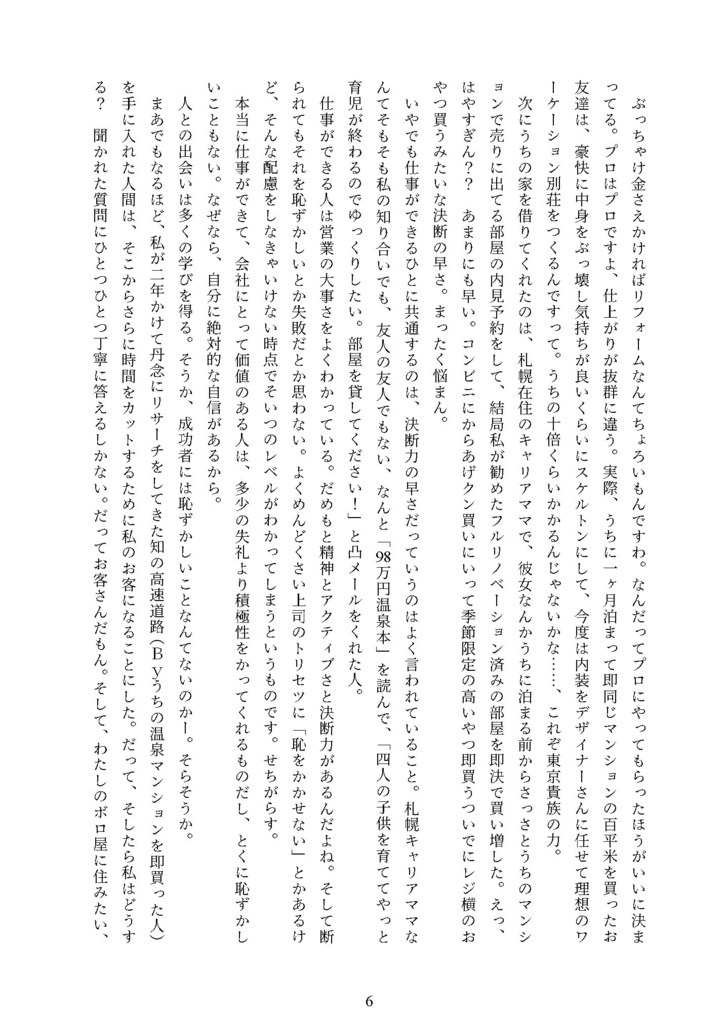 ぶっちゃけ金さえかければリフォームなんてちょろいもんですわ。なんだってプロにやってもらったほうがいいに決ま
ってる。プロはプロですよ、仕上がりが抜群に違う。実際、うちに一ヶ月泊まって即同じマンションの百平米を買ったお
友達は、豪快に中身をぶっ壊し気持ちが良いくらいにスケルトンにして、今度は内装をデザイナーさんに任せて理想のワ
ーケーション別荘をつくるんですって。うちの十倍くらいかかるんじゃないかな……、これぞ東京貴族の力。
　次にうちの家を借りてくれたのは、札幌在住のキャリアママで、彼女なんかうちに泊まる前からさっさとうちのマンシ
ョンで売りに出てる部屋の内見予約をして、結局私が勧めたフルリノベーション済みの部屋を即決で買い増した。えっ、
はやすぎん？？　あまりにも早い。コンビニにからあげクン買いにいって季節限定の高いやつ即買うついでにレジ横のお
やつ買うみたいな決断の早さ。まったく悩まん。
　いやでも仕事ができるひとに共通するのは、決断力の早さだっていうのはよく言われていること。札幌キャリアママな
んてそもそも私の知り合いでも、友人の友人でもない、なんと「98万円温泉本」を読んで、「四人の子供を育ててやっと
育児が終わるのでゆっくりしたい。部屋を貸してください！」と凸メールをくれた人。
　仕事ができる人は営業の大事さをよくわかっている。だめもと精神とアクティブさと決断力があるんだよね。そして断
られてもそれを恥ずかしいとか失敗だとか思わない。よくめんどくさい上司のトリセツに「恥をかかせない」とかあるけ
ど、そんな配慮をしなきゃいけない時点でそいつのレベルがわかってしまうというものです。せちがらす。
　本当に仕事ができて、会社にとって価値のある人は、多少の失礼より積極性をかってくれるものだし、とくに恥ずかし
いこともない。なぜなら、自分に絶対的な自信があるから。
　人との出会いは多くの学びを得る。そうか、成功者には恥ずかしいことなんてないのかー。そらそうか。
　まあでもなるほど、私が二年かけて丹念にリサーチをしてきた知の高速道路（Ｂｙうちの温泉マンションを即買った人）
を手に入れた人間は、そこからさらに時間をカットするために私のお客になることにした。だって、そしたら私はどうす
る？　聞かれた質問にひとつひとつ丁寧に答えるしかない。だってお客さんだもん。そして、わたしのボロ屋に住みたい、
6